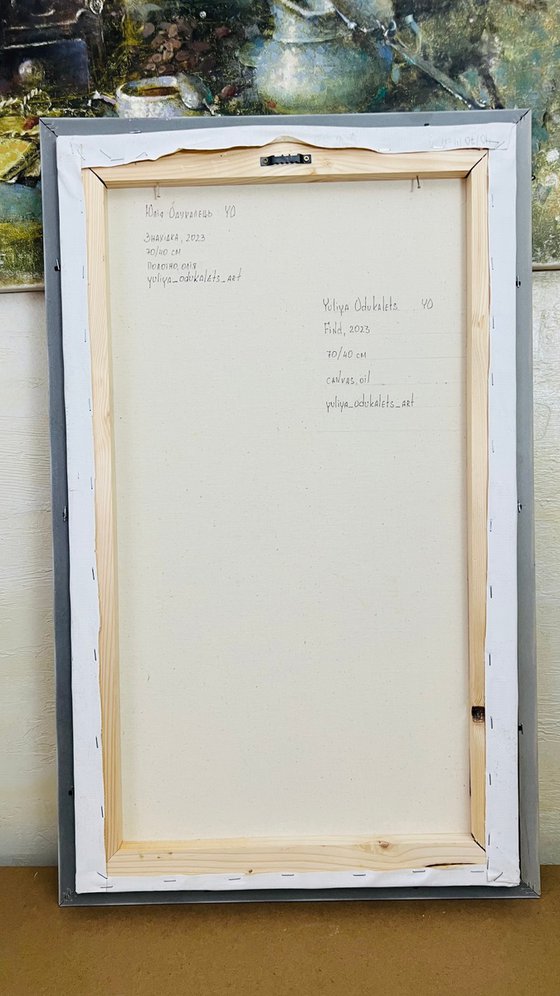 Юлія Одукалець YO
Знахідка, 2023
70/40 см
Полотно, олія
yuliya_odukalets_art
Yuliya Odukalets YO
Find, 2023
70/40 см
canvas, oil
yuliya_odukalets_art